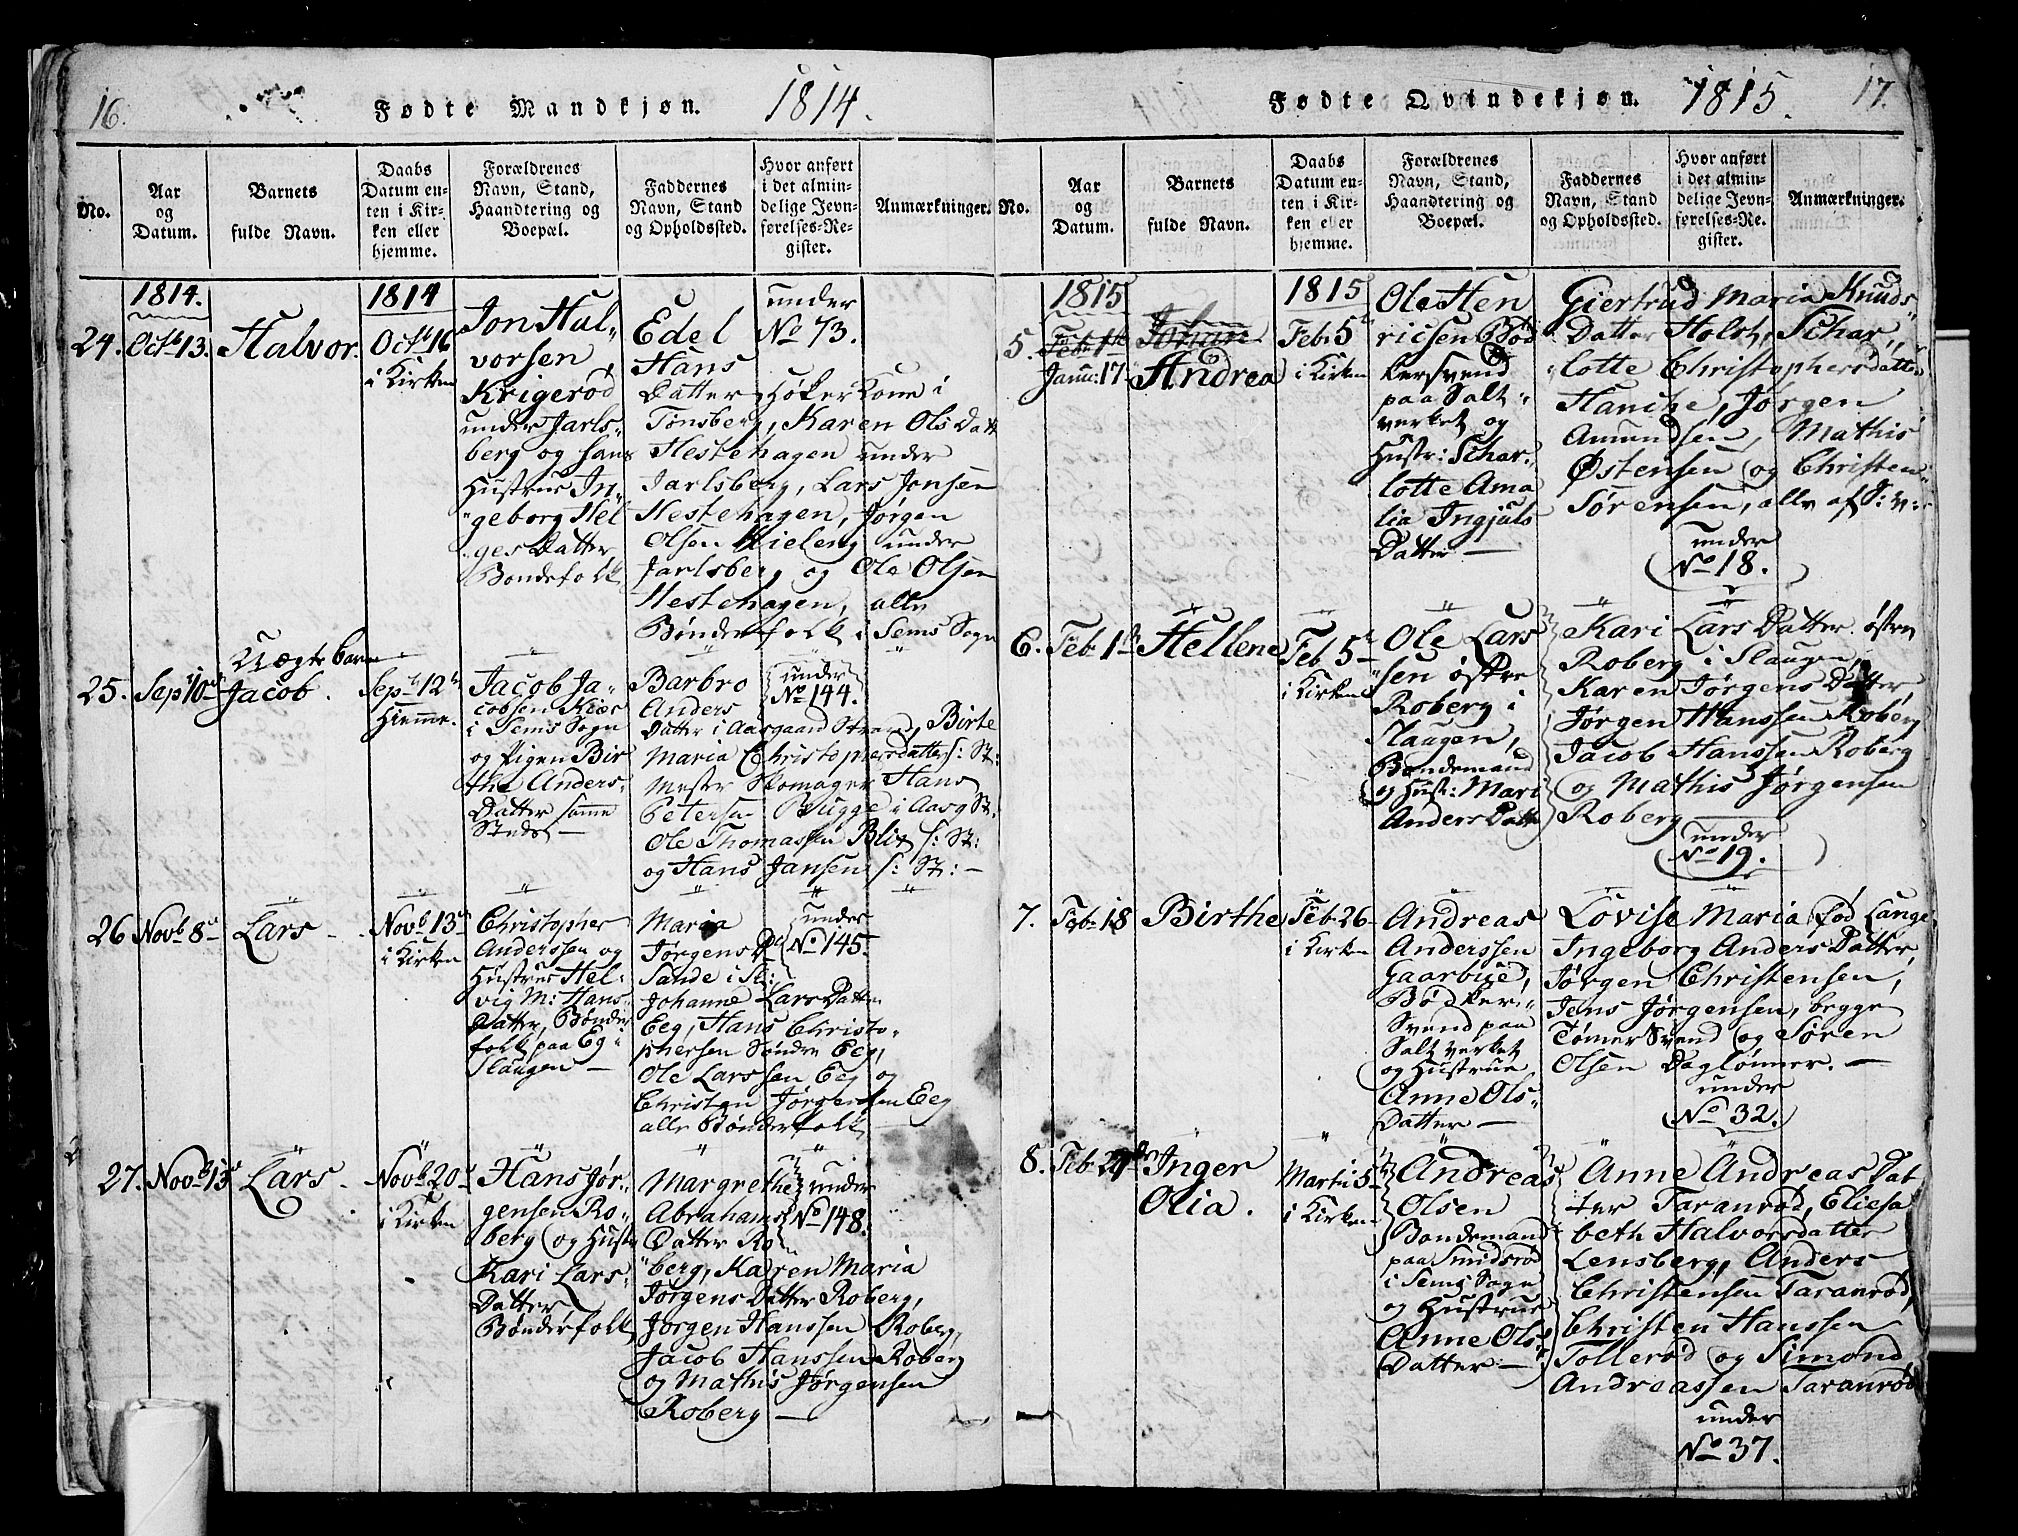 16.
Fødte Mandkjøn. 1814.
No.
Aar
og
Datum.
Barnets
fulde Navn.
Daabs
Datum en-
ten i Kir-
ken eller
hjemme.
Forældrenes
Navn, Stand,
Haandtering og
Boepæl.
Faddernes
Navn, Stand
og Opholdssted.
Hvor anført
i det almin-
delige Jevn-
førelses-Re-
gister.
Anmærkninger.
1814.
24. Octb 13.
Halvor.
1814
Octb 16
i Kirken
Jon Hal-
vorsen
Krigerød
under Jarls-
berg og hans
Hustrue In-
geborg Hel
ges Datter
Bondefolk
Edel
Hans
Datter Høker Kone i
Tønsberg, Karen Ols Datt
Hestehagen under
Jarlsberg, Lars Jonsen
Hestehagen, Jørgen
Olsen under
Jarlsberg og Ole Olsen
Hestehagen, alle
Bønderfolk i Sems Sogn
under
No 73.
25. Sep 10
Uægte barn
Jacob.
Sepb 12
Hiemme.
Jacob Ja-
cobsen Kiær
i Sems Sogn
og Pigen Bir
the Anders-
Datter samme
Steds —
Barbro
Anders
Datter i Aasgaard Strand, Birte
Maria Christophersdatter S: St:
Mester Skomager Hans
Petersen Bugge i Aasg St:
Ole Thomassen Blix S: St:
og Hans Jansen S: St: —
under
No 144.
26 Novb 8
Lars
Novb 13
i Kirken
Christopher
Anderssen og
Hustrue Hel-
vig M: Hans-
Datter, Bønder
folk paa Eg i
Slaugen —
Maria
Jørgens D
Sande i Sl:
Johanne Lars Datter
Eeg, Hans Christo-
phersen Søndre Eeg,
Ole Larssen Eeg og
Christen Jørgensen Eeg
alle Bønderfolk —
under
No 145.
27. Novb 13
Lars
Novb 20
i Kirken
Hans Jør-
gensen Ro-
berg og Hustr
Kari Lars-
Datter
Bønderfolk
Margrethe
Abrahams
Datter Ro
berg, Karen Maria
Jørgens Datter Roberg,
Jørgen Hanssen Roberg,
Jacob Hanssen Roberg
og Mathis Jørgensen
Roberg —
under
No 148.
17.
Fødte Qvindekjøn. 1815.
No.
Aar
og
Datum.
Barnets
fulde Navn.
Daabs
Datum en-
ten i Kir-
ken eller
hjemme.
Forældrenes
Navn, Stand,
Haandtering og
Boepæl.
Faddernes
Navn, Stand
og Opholdssted.
Hvor anført
i det almin-
delige Jevn-
førelses-Re-
gister.
Anmærkninger.
1815
5. Feb: 1
Janu: 17
Andrea
1815
Feb: 5
i Kirken
Ole Hen
ricsen Bød
kersvend
paa Salt
verket og
Hustr: Schar-
lotte Ama
lia Ingjuls
Datter —
Giertrud Maria Knuds
Datter Holst, Schar
lotte Christophersdatter
Hanche, Jørgen
Amundsen, Mathis
Østensen og Christen
Sørensen, alle af S: v:
under
No 18.
6. Feb: 1
Hellene
Feb 5
i Kirken
Ole Lars
sen østre
Roberg i
Slaugen,
Bondemand
og Hust: Mari
Anders Datt
Kari Lars Datter østen
Roberg i Slaugen,
Karen Jørgens Datter,
Jørgen Hanssen Roberg
Jacob Hanssen Roberg
og Mathis Jørgensen
Roberg
under
No 19.
7. Feb: 18
Birthe
Feb: 26
i Kirken
Andreas
Anderssen
Gaarboe,
Bødker-
Svend paa
Salt verket
og Hustrue,
Anne Ols-
Datter —
Lovise Maria fød Lange
Ingeborg Anders Datter,
Jørgen Christensen,
Jens Jørgensen, begge
Tømer Svend og Søren
Olsen Daglønner. —
under
No 32.
8. Feb:
Inger
Olia.
Marti: 5
i Kirken
Andreas
Olsen
Bondemand
paa Smidsrød
i Sems Sogn
og Hustrue
Anne Ols-
Datter —
Anne Andreas Dat
ter Taranrød, Eliesa
beth Halvorsdatter
Lensberg, Anders
Christensen Taranrød,
Christen Hanssen
Tollerød og Simond
Andreassen Taranrød
under
No 37.